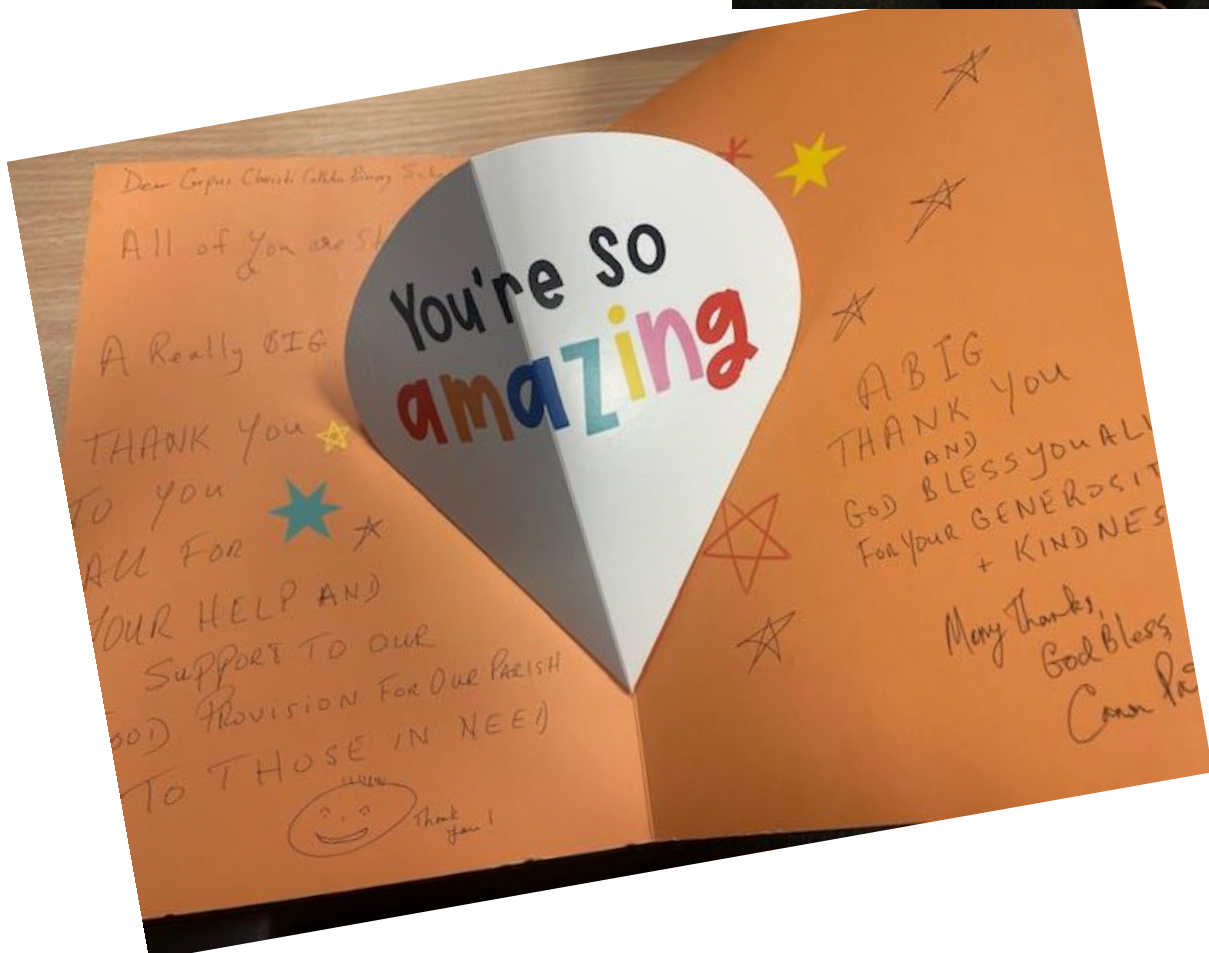 Dear Corpus Christi Catholic Primary
All of you are
A Really BIG
THANK YOU
TO YOU
ALL FOR
YOUR HELP AND
SUPPORT TO OUR
PROVISION FOR OUR PARISH
TO THOSE IN NEED
Thank
you!
You're so
amazing
A BIG
THANK YOU
AND
GOD BLESS YOU ALL
FOR YOUR GENEROSIT
+ KINDNES
Many Thanks,
God Bless,
Canon